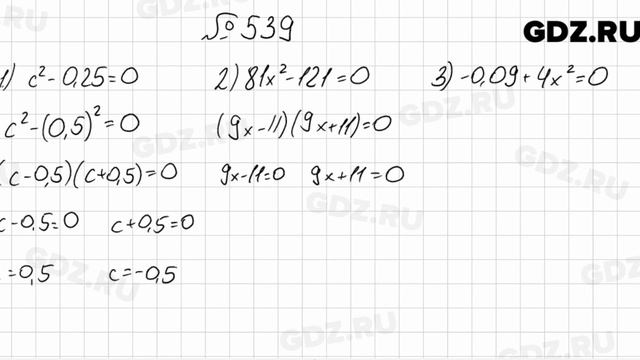 № 539
GDZ.RU
1) c² - 0,25 = 0
c² - (0,5)² = 0
(c - 0,5)(c + 0,5) = 0
c - 0,5 = 0 c + 0,5 = 0
= 0,5 c = -0,5
2) 81x² - 121 = 0
(9x - 11)(9x + 11) = 0
9x - 11 = 0 9x + 11 = 0
3) -0,09 + 4x² = 0
GDZ.RU
GDZ.RU
GDZ.RU
GDZ.RU
GDZ.RU
GDZ.RU
GDZ.RU